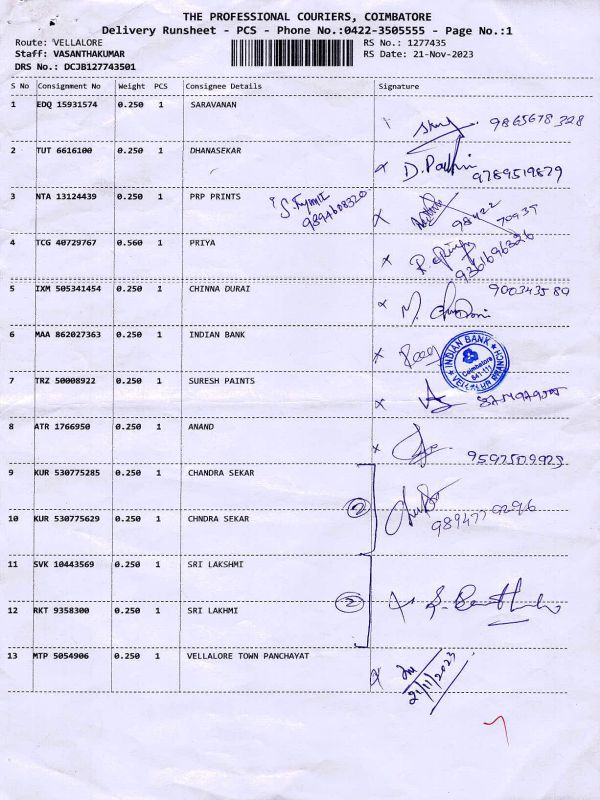 THE PROFESSIONAL COURIERS, COIMBATORE
Delivery Runsheet - PCS - Phone No.:0422-3505555 - Page No.:1
Route: VELLALORE
RS No.: 1277435
Staff: VASANTHAKUMAR
RS Date: 21-Nov-2023
DRS No.: DCJB127743501
S No Consignment No Weight PCS Consignee Details Signature
1 EDQ 15931574 0.250 1 SARAVANAN 9865678328
2 TUT 6616100 0.250 1 DHANASEKAR 9789519879
3 NTA 13124439 0.250 1 PRP PRINTS
4 TCG 40729767 0.560 1 PRIYA 9361696326
5 IXM 505341454 0.250 1 CHINNA DURAI
6 MAA 862027363 0.250 1 INDIAN BANK
INDIAN BANK
Coimbatore
641-111
VELLALUR BRANCH
7 TRZ 50008922 0.250 1 SURESH PAINTS
8 ATR 1766950 0.250 1 ANAND
9 KUR 530775285 0.250 1 CHANDRA SEKAR
2
10 KUR 530775629 0.250 1 CHNDRA SEKAR
11 SVK 10443569 0.250 1 SRI LAKSHMI
2
12 RKT 9358300 0.250 1 SRI LAKHMI
13 MTP 5054906 0.250 1 VELLALORE TOWN PANCHAYAT
21/11/2023